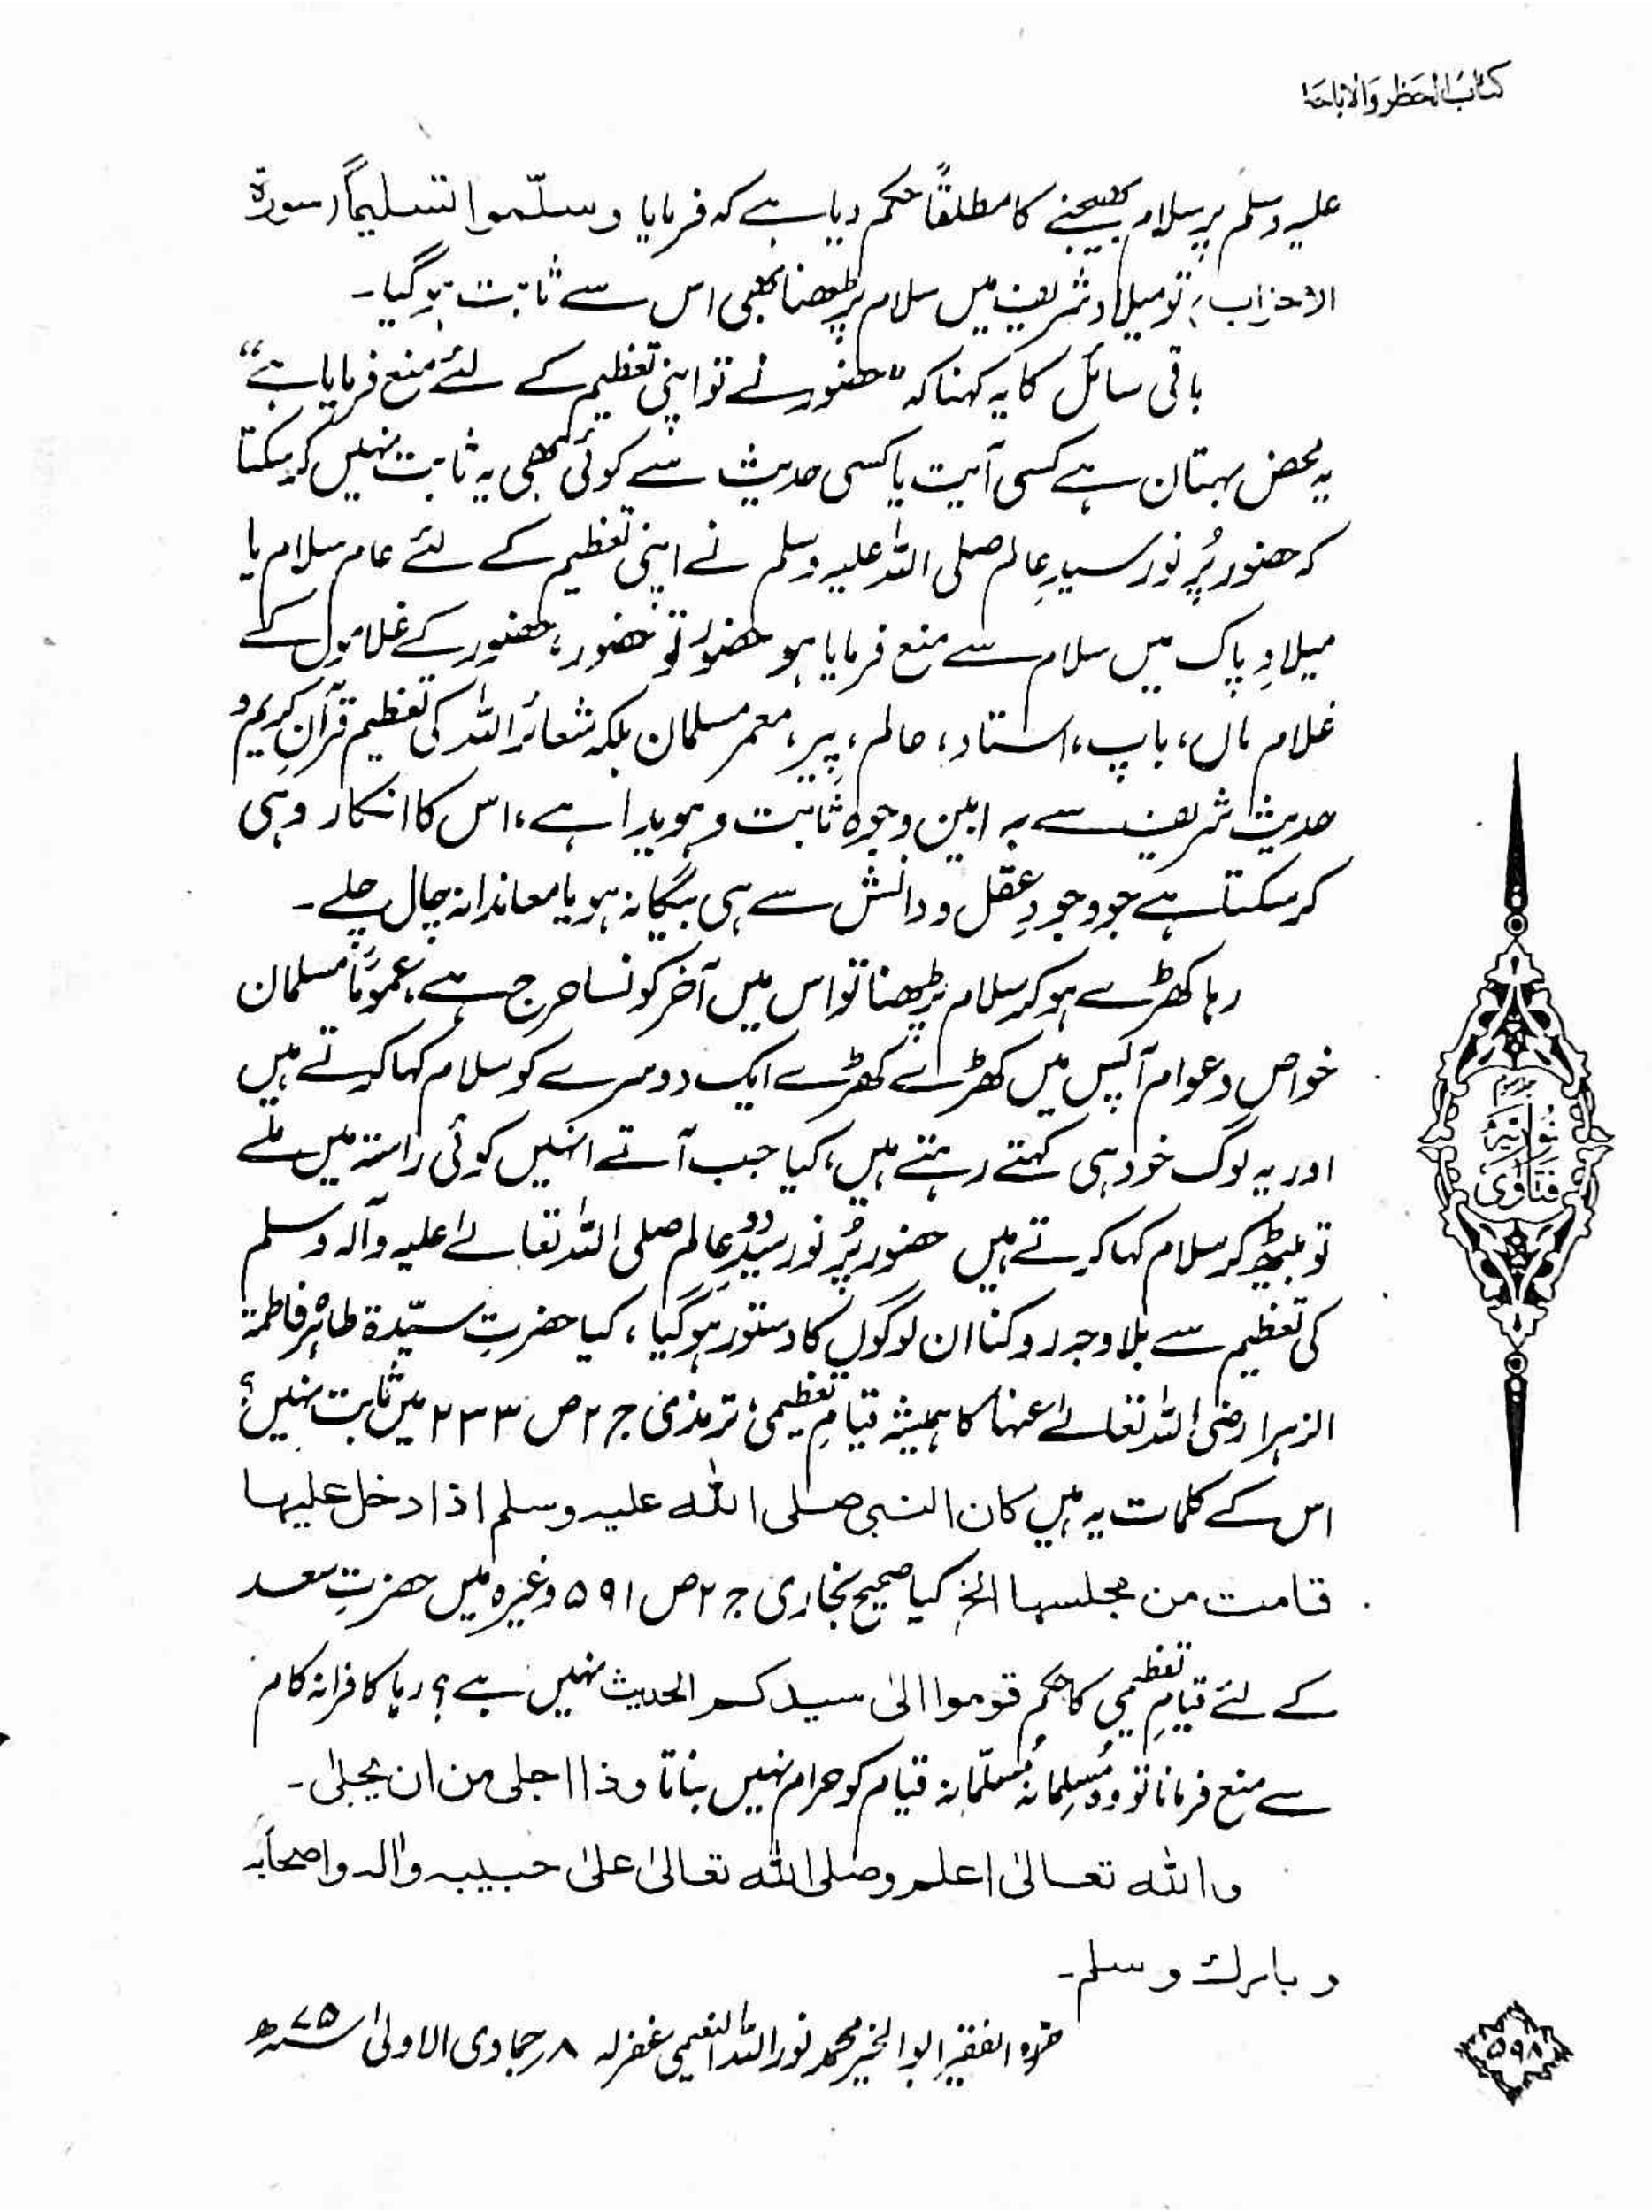 کتاب الحظر والاباحۃ
علیہ وسلم پر سلام بھیجنے کا مطلقاً حکم دیا ہے کہ فرمایا وسلّموا تسلیماً (سورة
الاحزاب) تو میلاد شریف میں سلام پڑھنا بھی اس سے ثابت ہوگیا۔
باقی سائل کا یہ کہنا کہ "حضور نے تو اپنی تعظیم کے لئے منع فرمایا ہے"
یہ محض بہتان ہے کسی آیت یا کسی حدیث سے کوئی بھی یہ ثابت نہیں کرسکتا
کہ حضور پُر نور سیدِ عالم صلی اللہ علیہ وسلم نے اپنی تعظیم کے لئے عام سلام یا
میلادِ پاک میں سلام سے منع فرمایا ہو حضور تو حضور، حضور کے غلاموں کے
غلام ماں، باپ، استاد، عالم، پیر، معمر مسلمان بلکہ شعائر اللہ کی تعظیم قرآنِ کریم و
حدیث شریف سے بہ ابین وجوہ ثابت و ہویدا ہے، اس کا انکار وہی
کرسکتا ہے جو وجودِ عقل و دانش سے ہی بیگانہ ہو یا معاندانہ چال چلے۔
رہا کھڑے ہوکر سلام پڑھنا تو اس میں آخر کونسا حرج ہے، عموماً مسلمان
خواص و عوام آپس میں کھڑے کھڑے ایک دوسرے کو سلام کہا کرتے ہیں
اور یہ لوگ خود ہی کہتے رہتے ہیں، کیا جب آتے انہیں کوئی راستہ میں ملے
تو بیٹھ کر سلام کہا کرتے ہیں حضور پُر نور سیدِ عالم صلی اللہ تعالےٰ علیہ وآلہ وسلم
کی تعظیم سے بلا وجہ روکنا ان لوگوں کا دستور ہوگیا، کیا حضرتِ سیّدة طاہرہ فاطمة
الزہرا رضی اللہ تعالےٰ عنہا کا ہمیشہ قیامِ تعظیمی ترمذی ج ۲ ص ۲۳۳ میں ثابت نہیں؟
اس کے کلمات یہ ہیں کان النبی صلی اللہ علیہ وسلم اذا دخل علیہا
قامت من مجلسہا الخ کیا صحیح بخاری ج ۲ ص ۵۹۱ وغیرہ میں حضرتِ سعد
کے لئے قیامِ تعظیمی کا حکم قوموا الیٰ سیدکم الحدیث نہیں ہے؟ رہا کافرانہ کام
سے منع فرمانا تو وہ مُسلِمانہ مُسلَّمانہ قیام کو حرام نہیں بناتا وذا اجلی من ان یجلیٰ۔
واللہ تعالیٰ اعلم وصلی اللہ تعالیٰ علیٰ حبیبہ واٰلہ واصحابہ
وبارك وسلم۔
حررہ الفقیر ابو الخیر محمد نور اللہ النعیمی غفرلہ ۸ جمادی الاولیٰ سنہ ۷۵ھ
فتاویٰ نوریہ
۵۹۸